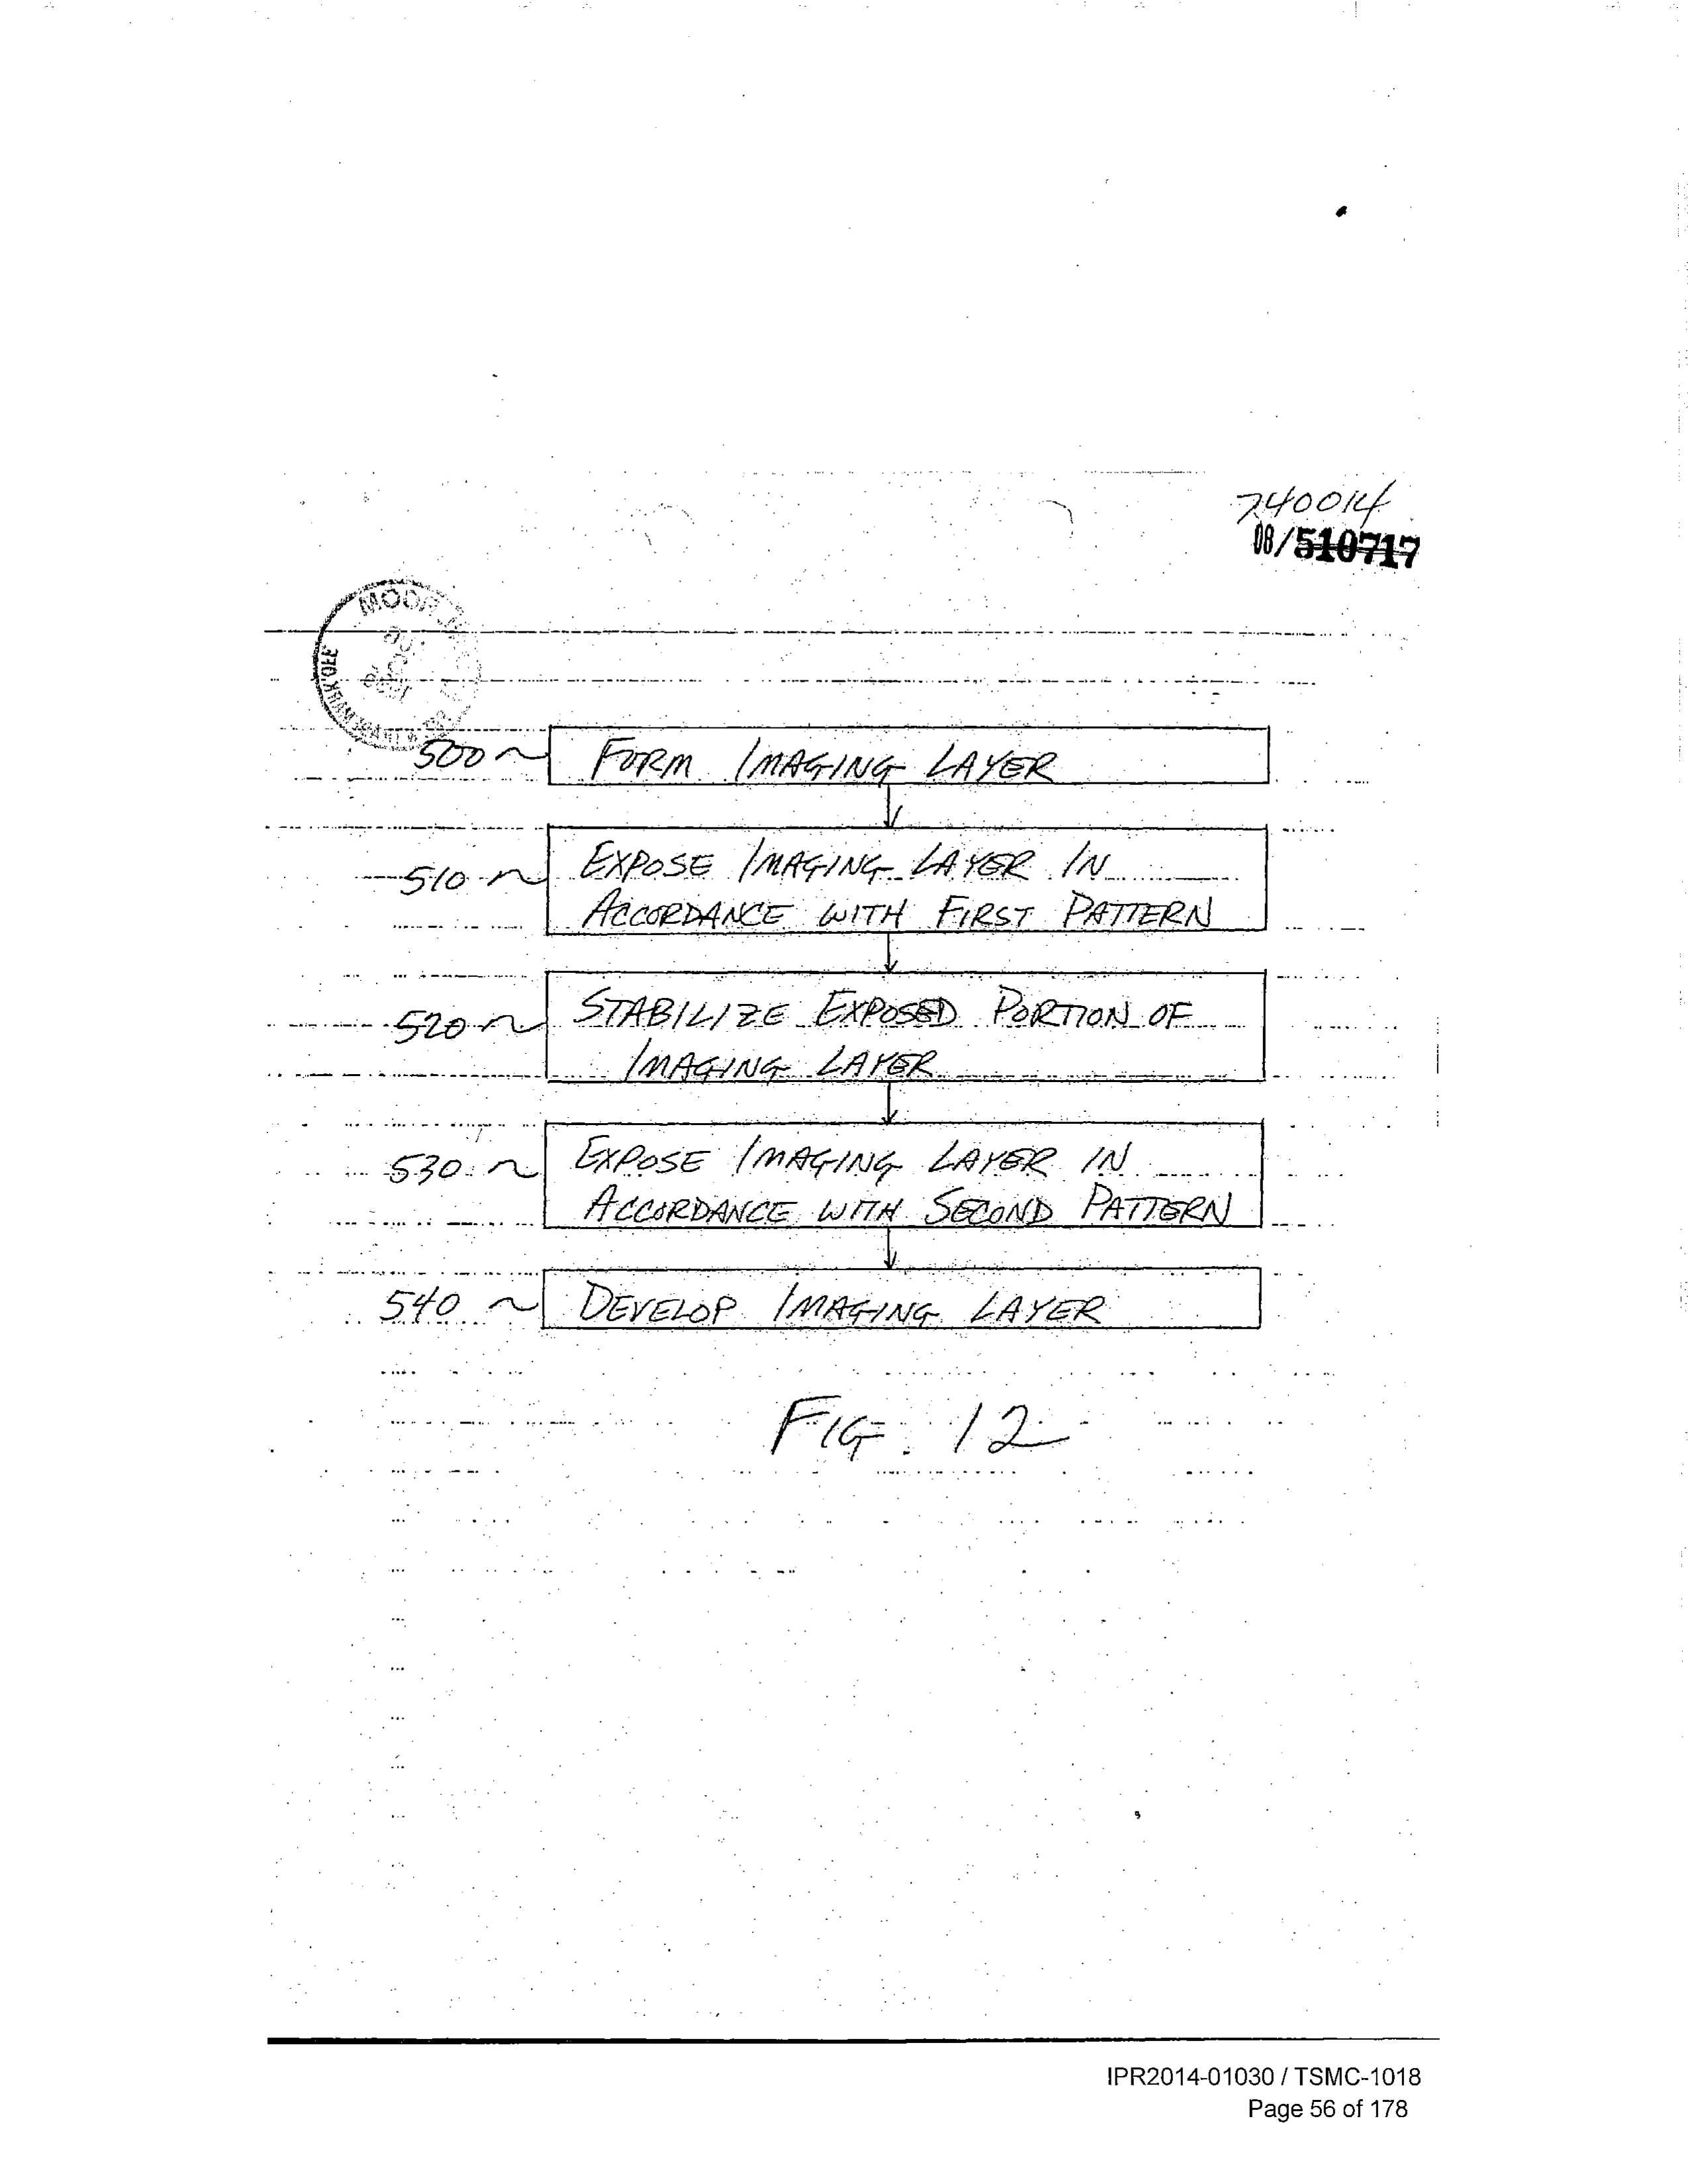 740014
08/510717
500 FORM IMAGING LAYER
510 EXPOSE IMAGING LAYER IN
ACCORDANCE WITH FIRST PATTERN
520 STABILIZE EXPOSED PORTION OF
IMAGING LAYER
530 EXPOSE IMAGING LAYER IN
ACCORDANCE WITH SECOND PATTERN
540 DEVELOP IMAGING LAYER
FIG. 12
IPR2014-01030 / TSMC-1018
Page 56 of 178